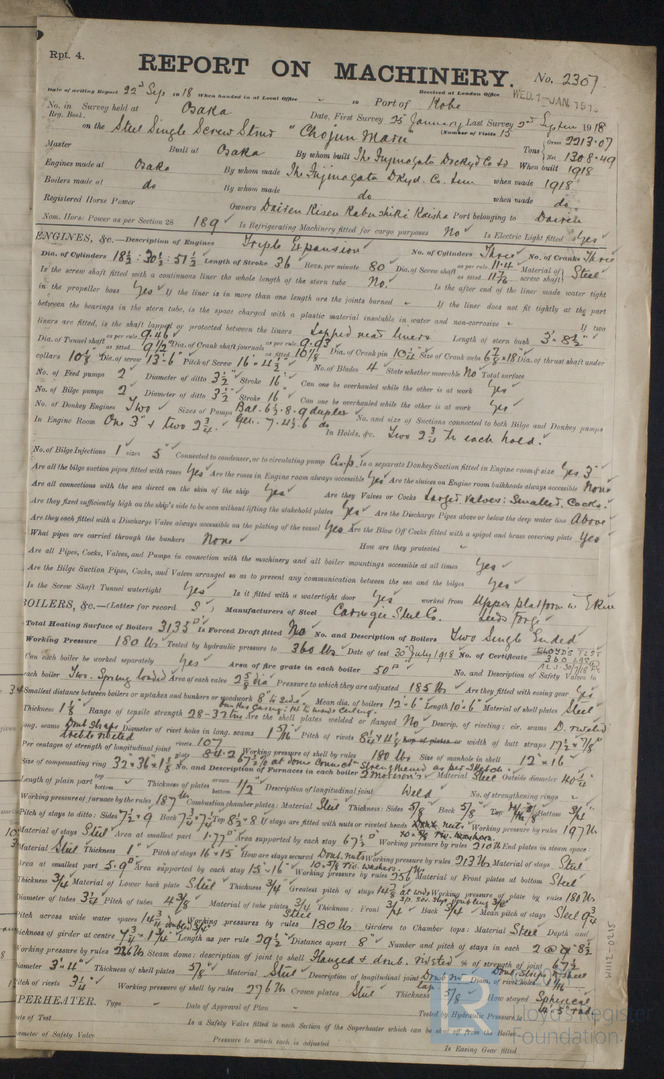 Rpt. 4.
REPORT ON MACHINERY.
No. 2307
Date of writing Report 22d Sep 1918 When handed in at Local Office Port of Kobe
Received at London Office WED. 1-JAN. 19
No. in Survey held at Osaka Date, First Survey 25 January Last Survey 2nd Septem 1918
Reg. Book. (Number of Visits 15
on the Steel Single Screw Strmr "Chojun Maru" Tons Gross 2213.07 Net 1308.49
Master Built at Osaka By whom built The Fujinagata Dockyd Co Ld When built 1918
Engines made at Osaka By whom made The Fujinagata Dkyd. Co. Lim when made 1918
Boilers made at do By whom made do when made do
Registered Horse Power Owners Dairen Kisen Kabushiki Kaisha Port belonging to Dairen
Nom. Horse Power as per Section 28 189 Is Refrigerating Machinery fitted for cargo purposes No Is Electric Light fitted Yes
ENGINES, &c.—Description of Engines Triple Expansion No. of Cylinders Three No. of Cranks Three
Dia. of Cylinders 18½ : 30½ : 51½ Length of Stroke 36 Revs. per minute 80 Dia. of Screw shaft as per rule 11.4 as fitted 11 7/16 Material of screw shaft Steel
Is the screw shaft fitted with a continuous liner the whole length of the stern tube No. Is the after end of the liner made water tight
in the propeller boss Yes If the liner is in more than one length are the joints burned If the liner does not fit tightly at the part
between the bearings in the stern tube, is the space charged with a plastic material insoluble in water and non-corrosive If two
liners are fitted, is the shaft lapped or protected between the liners Lapped near liners Length of stern bush 3'-8½"
Dia. of Tunnel shaft as per rule as fitted 9½ Dia. of Crank shaft journals as per rule 9.93 as fitted 10⅛ Dia. of Crank pin 10¼ Size of Crank webs 6⅞ x 18 Dia. of thrust shaft under
collars 10⅛ Dia. of screw 13'-6" Pitch of Screw 16'-4½" No. of Blades 4 State whether moveable No Total surface
No. of Feed pumps 2 Diameter of ditto 3½" Stroke 16" Can one be overhauled while the other is at work Yes
No. of Bilge pumps 2 Diameter of ditto 3½" Stroke 16" Can one be overhauled while the other is at work Yes
No. of Donkey Engines Two Sizes of Pumps Bal. 6½.8.9 duplex Gen. 7.4½.6 do No. and size of Suctions connected to both Bilge and Donkey pumps
In Engine Room One 3" & two 2¾ In Holds, &c. Two 2¾ to each hold.
No. of Bilge Injections 1 sizes 5" Connected to condenser, or to circulating pump Circp. Is a separate Donkey Suction fitted in Engine room & size Yes 3"
Are all the bilge suction pipes fitted with roses Yes Are the roses in Engine room always accessible Yes Are the sluices on Engine room bulkheads always accessible None
Are all connections with the sea direct on the skin of the ship Yes Are they Valves or Cocks Larger, Valves: Smaller, Cocks.
Are they fixed sufficiently high on the ship's side to be seen without lifting the stokehold plates Yes Are the Discharge Pipes above or below the deep water line Above
Are they each fitted with a Discharge Valve always accessible on the plating of the vessel Yes Are the Blow Off Cocks fitted with a spigot and brass covering plate Yes
What pipes are carried through the bunkers None How are they protected
Are all Pipes, Cocks, Valves, and Pumps in connection with the machinery and all boiler mountings accessible at all times Yes
Are the Bilge Suction Pipes, Cocks, and Valves arranged so as to prevent any communication between the sea and the bilges Yes
Is the Screw Shaft Tunnel watertight Yes Is it fitted with a watertight door Yes worked from Upper platform in E Rm
BOILERS, &c.—(Letter for record S) Manufacturers of Steel Carnegie Steel Co. Leeds Forge
Total Heating Surface of Boilers 3135 □' Is Forced Draft fitted No No. and Description of Boilers Two Single Ended
Working Pressure 180 lbs Tested by hydraulic pressure to 360 lbs Date of test 30 July 1918 No. of Certificate LLOYD'S TEST 360 LBS
Can each boiler be worked separately Yes Area of fire grate in each boiler 50 □' No. and Description of Safety Valves to
each boiler Two. Spring loaded Area of each valve 2⅝ dia Pressure to which they are adjusted 185 lbs Are they fitted with easing gear Yes
Smallest distance between boilers or uptakes and bunkers or woodwork Mean dia. of boilers 12'-6" Length 10'-6" Material of shell plates Steel
Thickness 1⅛" Range of tensile strength 28-32 tns Are the shell plates welded or flanged No Descrip. of riveting: cir. seams D. riveted
long. seams Doub. straps treble riveted Diameter of rivet holes in long. seams 1 3/16 Pitch of rivets 8¼ width of butt straps 17½ x ⅞
Per centages of strength of longitudinal joint rivets 107 plate 84.2 Working pressure of shell by rules 180 lbs Size of manhole in shell 12" x 16"
Size of compensating ring 32 x 36 x 1⅛ No. and Description of Furnaces in each boiler 2 Morison's Material Steel Outside diameter 40¼
Length of plain part top bottom Thickness of plates 1/2" Description of longitudinal joint Weld No. of strengthening rings
Working pressure of furnace by the rules 187 lb Combustion chamber plates: Material Steel Thickness: Sides ⅝ Back ⅝ Top Bottom ¾
Pitch of stays to ditto: Sides 7½ x 9 Back 7¾ x 7¾ Top 8½ x 8 If stays are fitted with nuts or riveted heads Doub. nuts Working pressure by rules 197 lb
Material of stays Steel Area at smallest part 1.77 □" Area supported by each stay 67½ □" Working pressure by rules 210 lb End plates in steam space:
Material Steel Thickness 1" Pitch of stays 16 x 15 How are stays secured Doub. nuts Working pressure by rules 213 lb Material of stays Steel
Area at smallest part 5.9 □" Area supported by each stay 15 x 16 Working pressure by rules 256 lbs Material of Front plates at bottom Steel
Thickness ¾ Material of Lower back plate Steel Thickness ¾ Greatest pitch of stays Working pressure of plate by rules 180 lbs
Diameter of tubes 3¼ Pitch of tubes 4⅜ Material of tube plates Steel Thickness: Front ¾ Back ¾ Mean pitch of stays 9¾
Pitch across wide water spaces 14¼ Working pressures by rules 180 lbs Girders to Chamber tops: Material Steel Depth and
thickness of girder at centre 7¾ x 1¾ Length as per rule 29½ Distance apart 8" Number and pitch of stays in each 2 @ 8½
Working pressure by rules 226 lbs Steam dome: description of joint to shell Flanged & doub. riveted % of strength of joint 67½
Diameter 3'-4" Thickness of shell plates ⅝" Material Steel Description of longitudinal joint Doub. riv lap Diam. of rivet holes
Pitch of rivets 3¼" Working pressure of shell by rules 276 lbs Crown plates Steel Thickness ⅝ How stayed Spherical
SUPERHEATER. Type Date of Approval of Plan Tested by Hydraulic Pressure to
Date of Test Is a Safety Valve fitted to each Section of the Superheater which can be shut off from the Boiler
Diameter of Safety Valve Pressure to which each is adjusted Is Easing Gear fitted
Lloyd's Register
Foundation